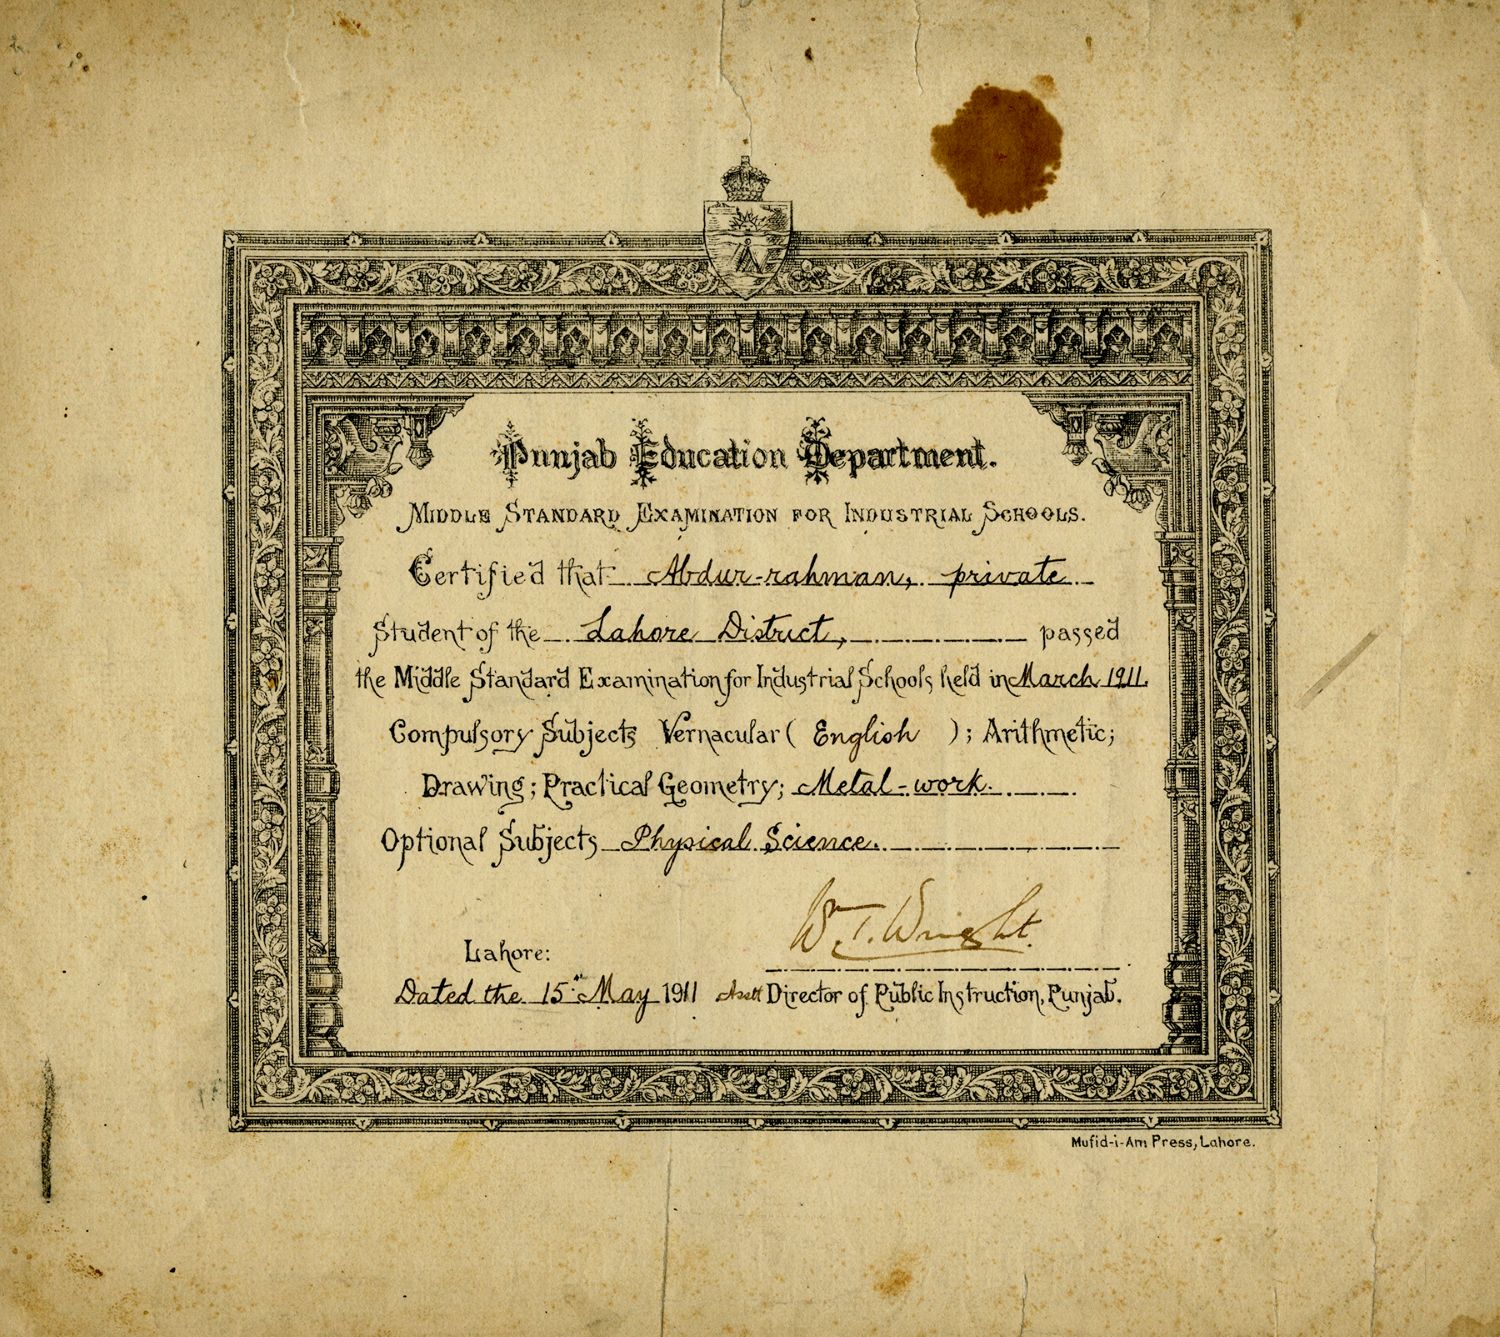 Punjab Education Department.
Middle Standard Examination for Industrial Schools.
Certified that Abdur-rahman, private
Student of the Lahore District, passed
the Middle Standard Examination for Industrial Schools held in March 1911.
Compulsory Subjects Vernacular ( English ); Arithmetic;
Drawing; Practical Geometry; Metal-work.
Optional Subjects Physical Science.
Wm. T. Wright.
Lahore:
Dated the 15th May 1911 Asstt Director of Public Instruction, Punjab.
Mufid-i-Am Press, Lahore.